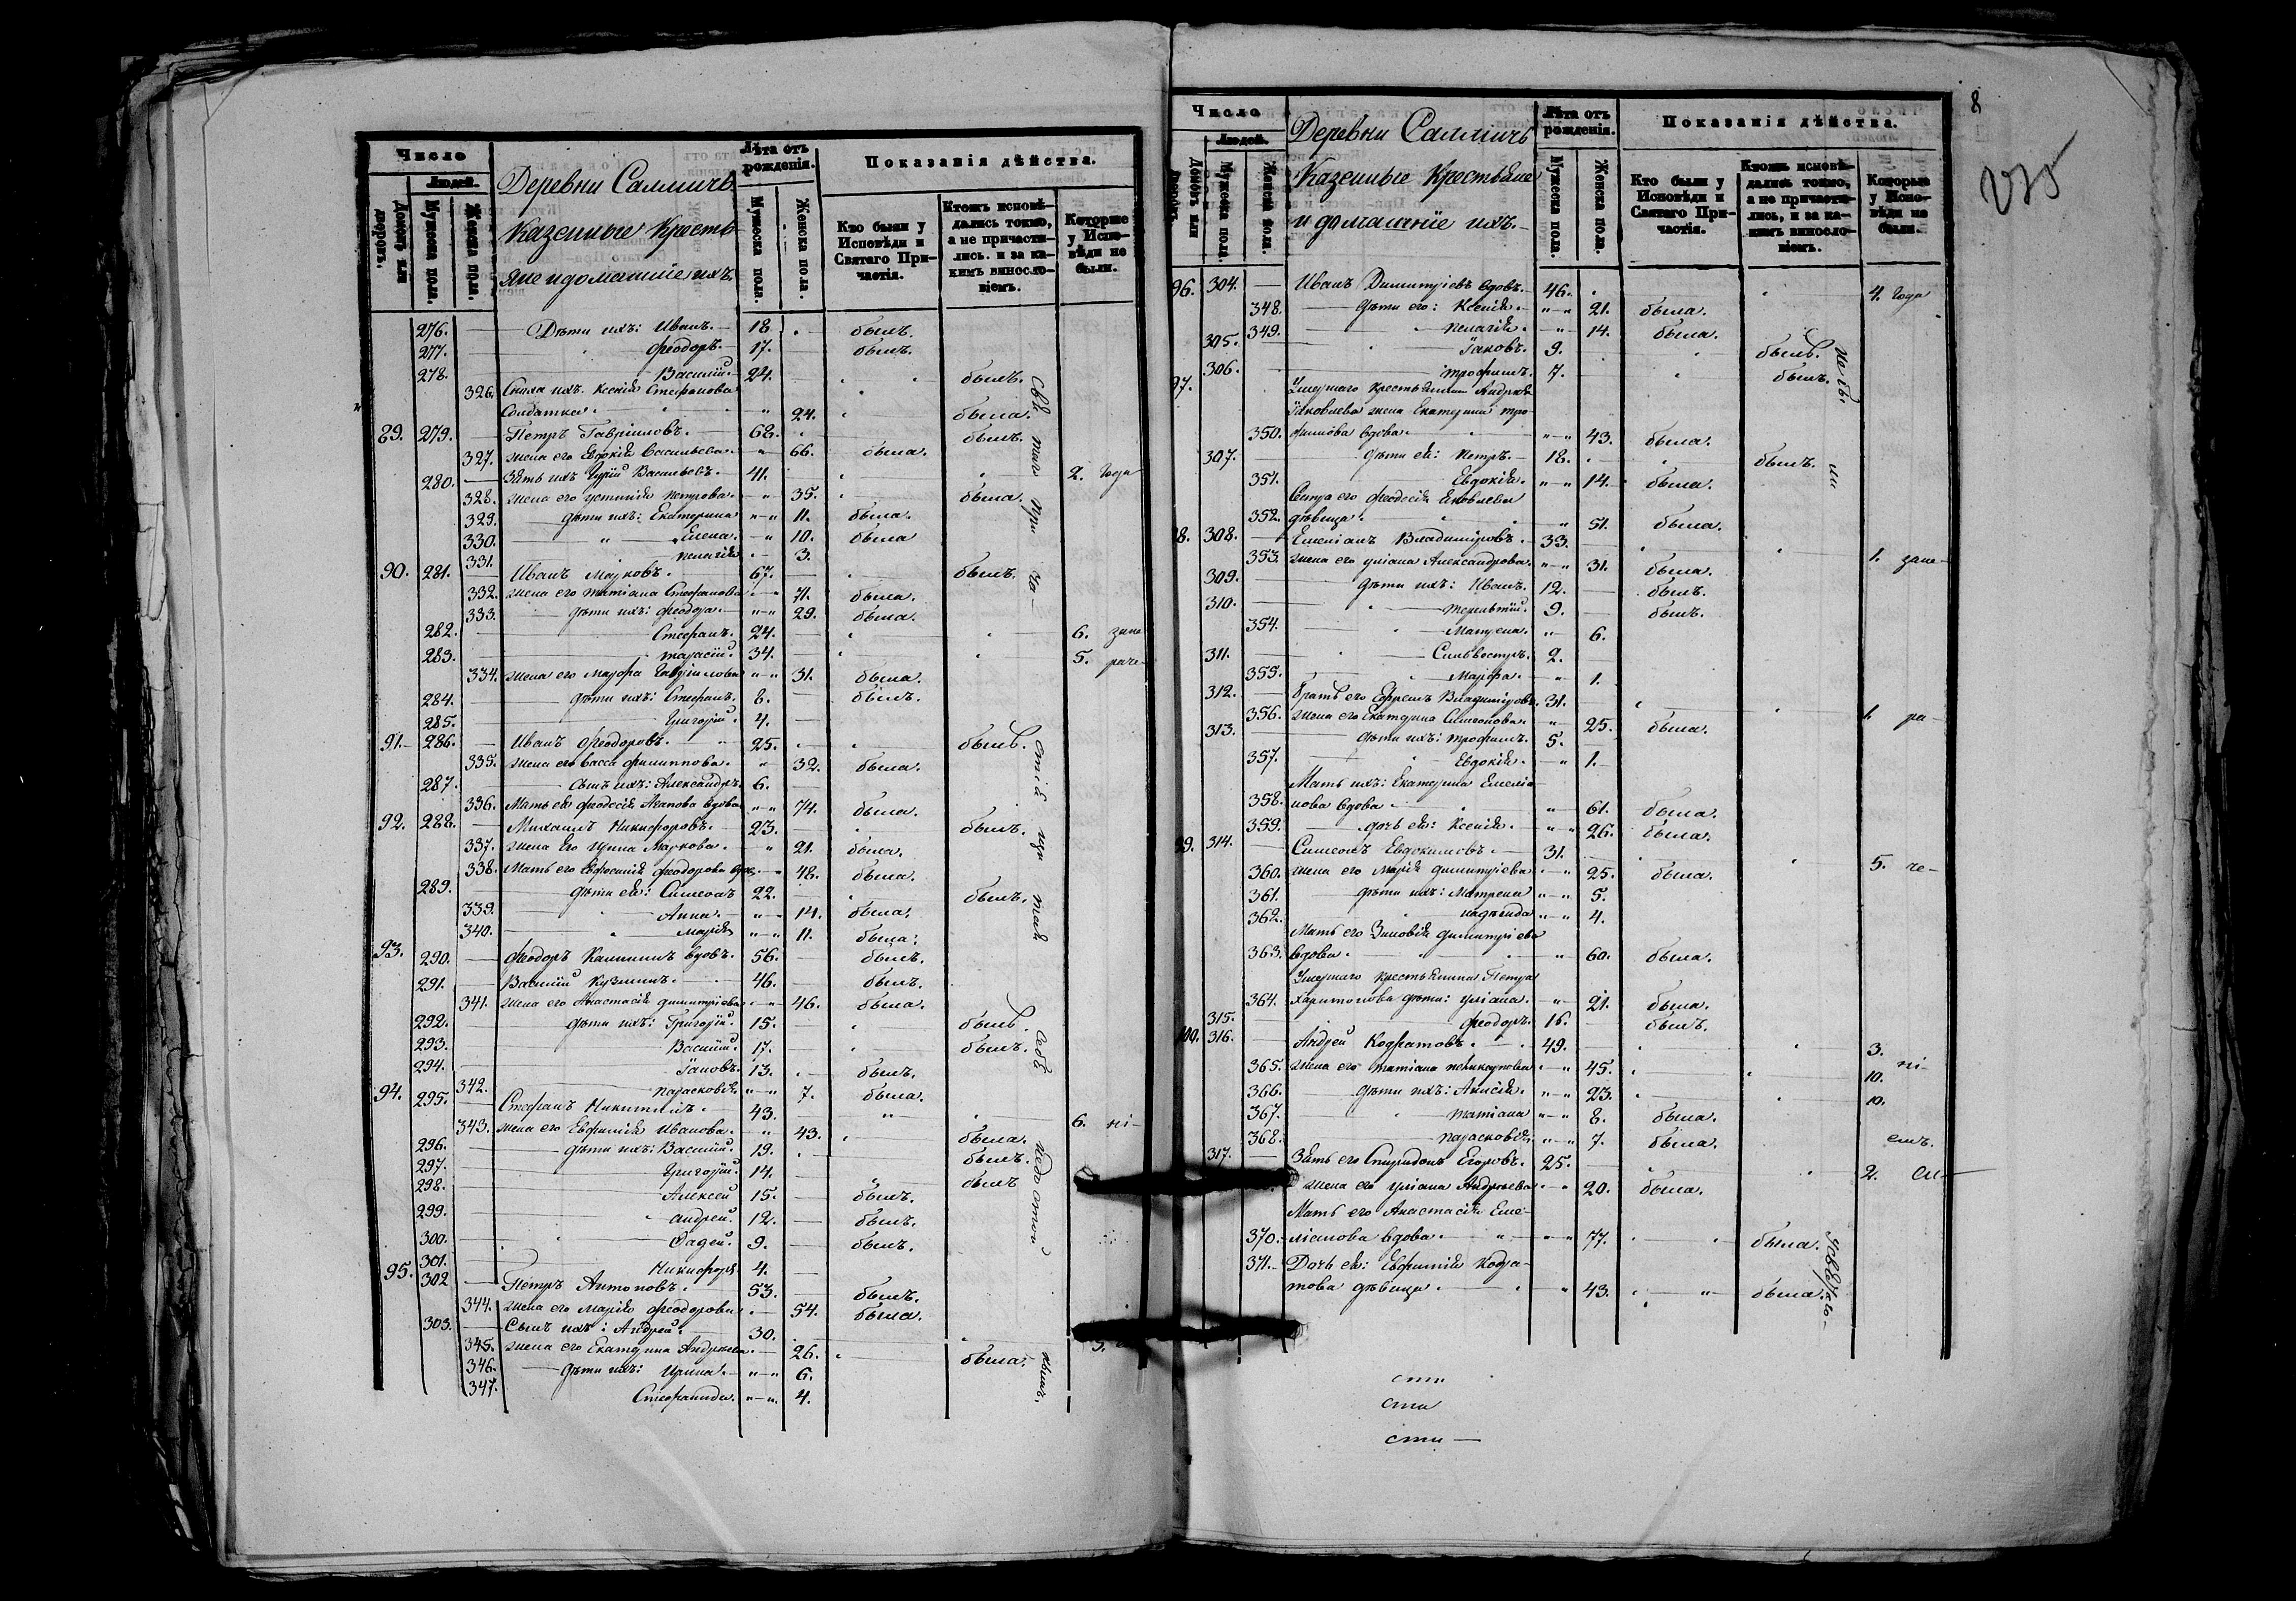 Число
Людей.
Домовъ или дворовъ.
Мужеска пола.
Женска пола.
Деревни Саммичь
Казенные Кресть
яне и домашніе ихъ
Лѣта отъ рожденія.
Мужеска пола.
Женска пола.
Показанія дѣйства.
Кто были у Исповѣди и Святаго Причастія.
Ктожъ исповѣдались токмо, а не причастились. и за какимъ винословіемъ.
Которые у Исповѣди не были.
276. Дѣти ихъ: Иванъ. 18. былъ.
277. Феодоръ. 17. былъ.
278. Василій. 24. былъ.
326. Сноха ихъ Ксенія Стефанова
Солдатка. 24. была.
89. 279. Петръ Гавріиловъ. 68. былъ.
327. жена его Евдокія Васильева. 66. была.
280. Зять ихъ Гурій Васильевъ. 41. 2. года
328. жена его Устинія Петрова. 35. была.
329. дѣти ихъ: Екатерина 11. была.
330. Елена. 10. была
331. Пелагія 3.
90. 281. Иванъ Марковъ. 67. былъ.
332. жена его Татіана Стефанова 71. была.
333. дѣти ихъ: Феодора. 29. была.
282. Стефанъ. 24. 6. зане
283. Тарасій. 34. 5. раче-
334. жена его Марфа Гавріилова 31. была.
284. дѣти ихъ: Стефанъ. 8. былъ.
285. Григорій. 4.
91. 286. Иванъ Феодоровъ. 25. былъ.
335. жена его Васса Филиппова. 32. была.
287. сынъ ихъ: Александръ 6.
336. Мать ея Феодосія Агапова вдова 74. была.
92. 288. Михаилъ Никифоровъ. 23. былъ.
337. жена его Ирина Маркова. 21. была.
338. Мать его Евфросинія Феодорова вдо. 48. была.
289. дѣти ея: Симеонъ 22. былъ.
339. Анна. 14. была.
340. Марія 11. была.
93. 290. Феодоръ Калининъ вдовъ. 56. былъ.
291. Василій Кузминъ. 46. былъ.
341. жена его Анастасія Димитріева 46. была.
292. дѣти ихъ: Григорій. 15. былъ.
293. Василій. 17. былъ.
294. Іаковъ. 13. былъ.
342. Парасковія 7. была.
94. 295. Стефанъ Никитинъ. 43. 6. ні-
343. жена его Евфимія Иванова. 43. была.
296. дѣти ихъ: Василій. 19. былъ.
297. Григорій. 14. былъ
298. Алексей 15. былъ.
299. Андрей. 12. былъ.
300. Фадей. 9. былъ.
301. Никифоръ 4.
95. 302 Петръ Антоновъ. 53. былъ.
344. жена его Марія Феодорова 54. была.
303. Сынъ ихъ: Андрей. 30.
345. жена его Екатерина Андреева. 26. была.
346. дѣти ихъ: Ирина. 6.
347. Стефанида. 4.
8
Число
Людей.
Домовъ или дворовъ.
Мужеска пола.
Женска пола.
Деревни Саммичь
Казенные Крестьяне
и домашніе ихъ.
Лѣта отъ рожденія.
Мужеска пола.
Женска пола.
Показанія дѣйства.
Кто были у Исповѣди и Святаго Причастія.
Ктожъ исповѣдались токмо, а не причастились, и за какимъ винословіемъ.
Которые у Исповѣди не были.
96. 304. Иванъ Димитріевъ вдовъ. 46. 4. года
348. Дѣти его: Ксенія. 21. была.
349. Пелагія. 14. была.
305. Іаковъ. 9. былъ.
306. Трофимъ. 7. былъ.
97. Умершаго крестьянина Андрея
Яковлева жена Екатерина Тро-
350. фимова вдова. 43. была.
307. Дѣти ея: Петръ. 18. былъ.
351. Евдокія. 14. была.
Сестра его Феодосія Яковлева
352. дѣвица. 51. была.
98. 308. Емеліанъ Владиміровъ. 33. 1. зане-
353. жена его Уліана Александрова. 31. была.
309. Дѣти ихъ: Иванъ. 12. былъ.
310. Терентій. 9. былъ.
354. Матрена. 6.
311. Сильвестръ. 2.
355. Марфа. 1.
312. братъ его Ефремъ Владиміровъ. 31. 1. ра-
356. жена его Екатерина Симеонова. 25. была.
313. дѣти ихъ: Трофимъ. 5.
357. Евдокія. 1.
Мать ихъ: Екатерина Емелія-
358. нова вдова 61. была.
359. дочь ея: Ксенія. 26. была.
99. 314. Симеонъ Евдокимовъ. 31. 5. че-
360. жена его Марія Димитріева 25. была.
361. дѣти ихъ: Матрена 5.
362. Надежда 4.
Мать его Зиновія Димитріева
363. вдова. 60. была.
Умершаго крестьянина Петра
364. Харитонова дѣти: Уліана. 21. была.
315. Феодоръ. 16. былъ.
100. 316. Андрей Кодратовъ. 49. 3.
365. жена его Татіана Поликарпова 45. 10. ні-
366. дѣти ихъ: Анисія. 23. 10.
367. Татіана 8. была.
368. Парасковія 7. была. емъ.
317. Зять его Спиридонъ Егоровъ. 25. 2. си-
жена его Уліана Андреева 20. была.
Мать его Анастасія Еме-
370. ліанова вдова. 77. была.
371. Дочь ея: Евфимія Кодра-
това дѣвица. 43. была.
сти
сти
сти